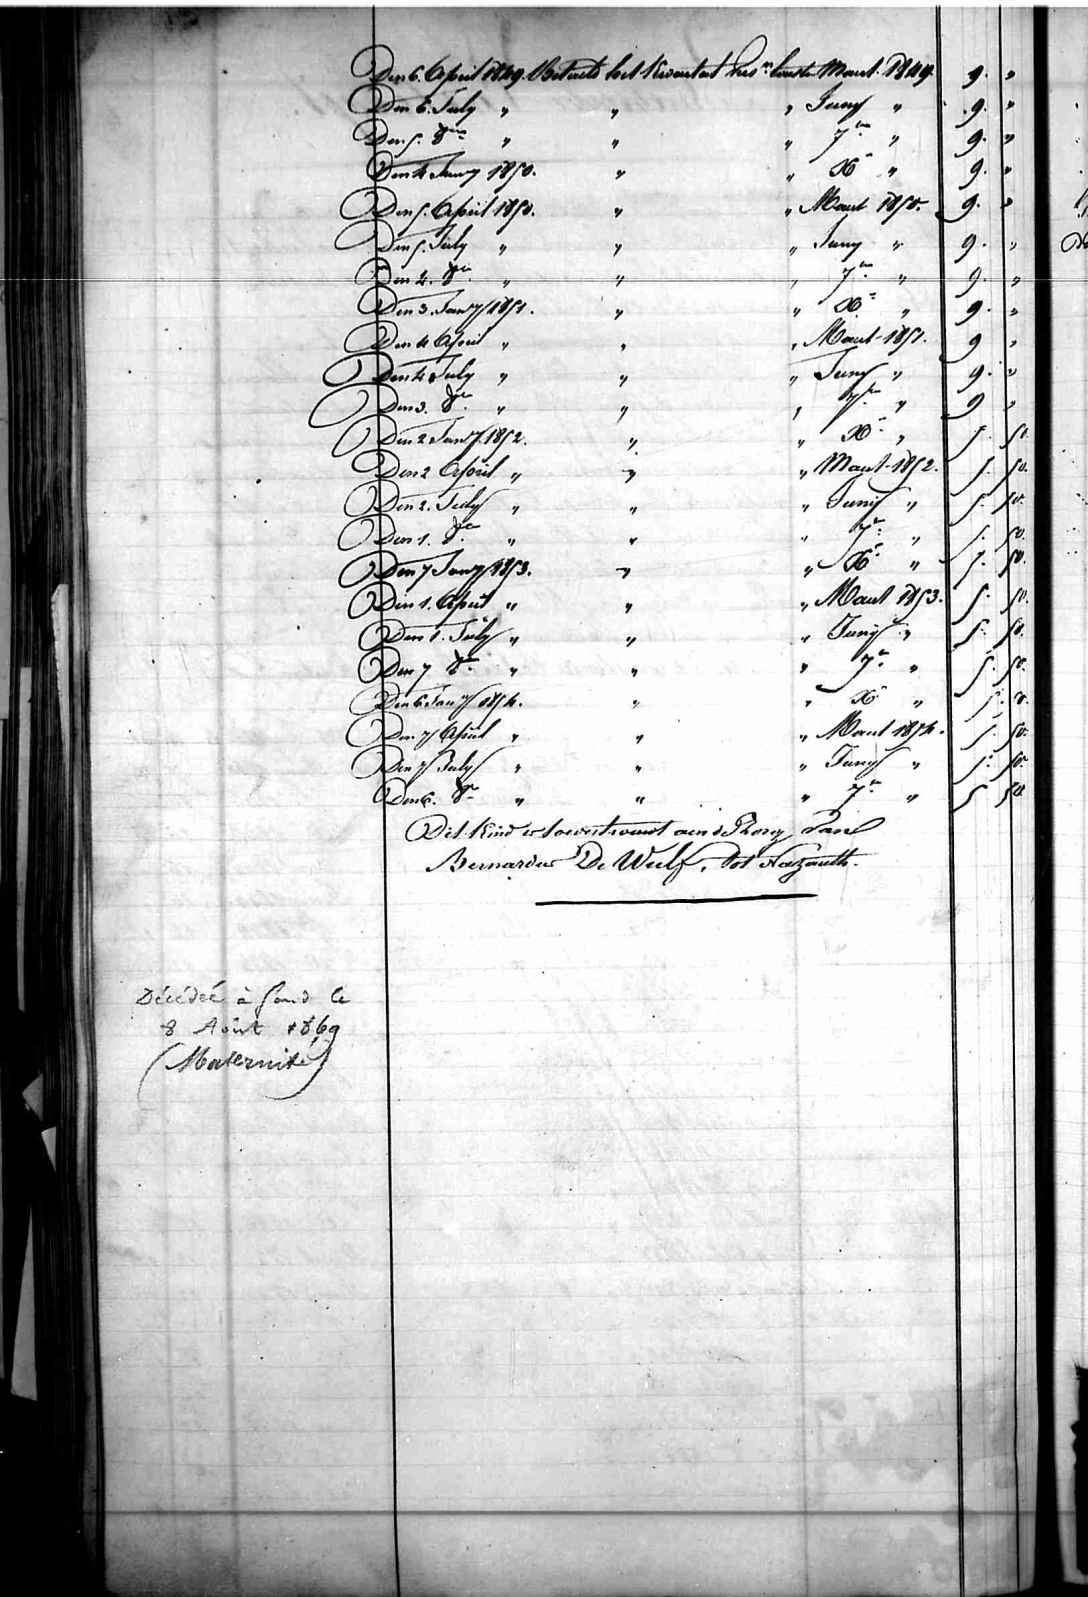 Den 6. April 1849. Betaeld het Kwartael Maert 1849. 9. "
Den 6. July " " " Juny " 9. "
Den 5. 8bre " " " 7bre " 9. "
Den 4 Janry 1850. " " Xbre " 9. "
Den 5. April 1850. " " Maert 1850. 9. "
Den 5. July " " " Juny " 9. "
Den 4. 8bre " " " 7bre " 9. "
Den 3. Janry 1851. " " Xbre " 9. "
Den 4 April " " " Maert 1851. 9 "
Den 4 July " " " Juny " 9. "
Den 3. 8bre " " " 7bre " 9 "
Den 2 Janry 1852. " " Xbre " 5. 50.
Den 2 April " " " Maert 1852. 5. 50.
Den 2. July " " " Juny " 5. 50.
Den 1. 8bre " " " 7bre " 5. 50.
Den 7 Janry 1853. " " Xbre " 5. 50.
Den 1. April " " " Maert 1853. 5. 50.
Den 1. July " " " Juny " 5. 50.
Den 7 8bre " " " 7bre " 5. 50.
Den 6 Janry 1854. " " Xbre " 5. 50.
Den 7 April " " " Maert 1854. 5. 50.
Den 7 July " " " Juny " 5. 50.
Den 6. 8bre " " " 7bre " 5 50
Dit Kind is toevertrouwt aen d'Zorg van
Bernardus De Wulf, tot Nazareth.
Décédée à Gand le
8 Août 1869
(Maternité)